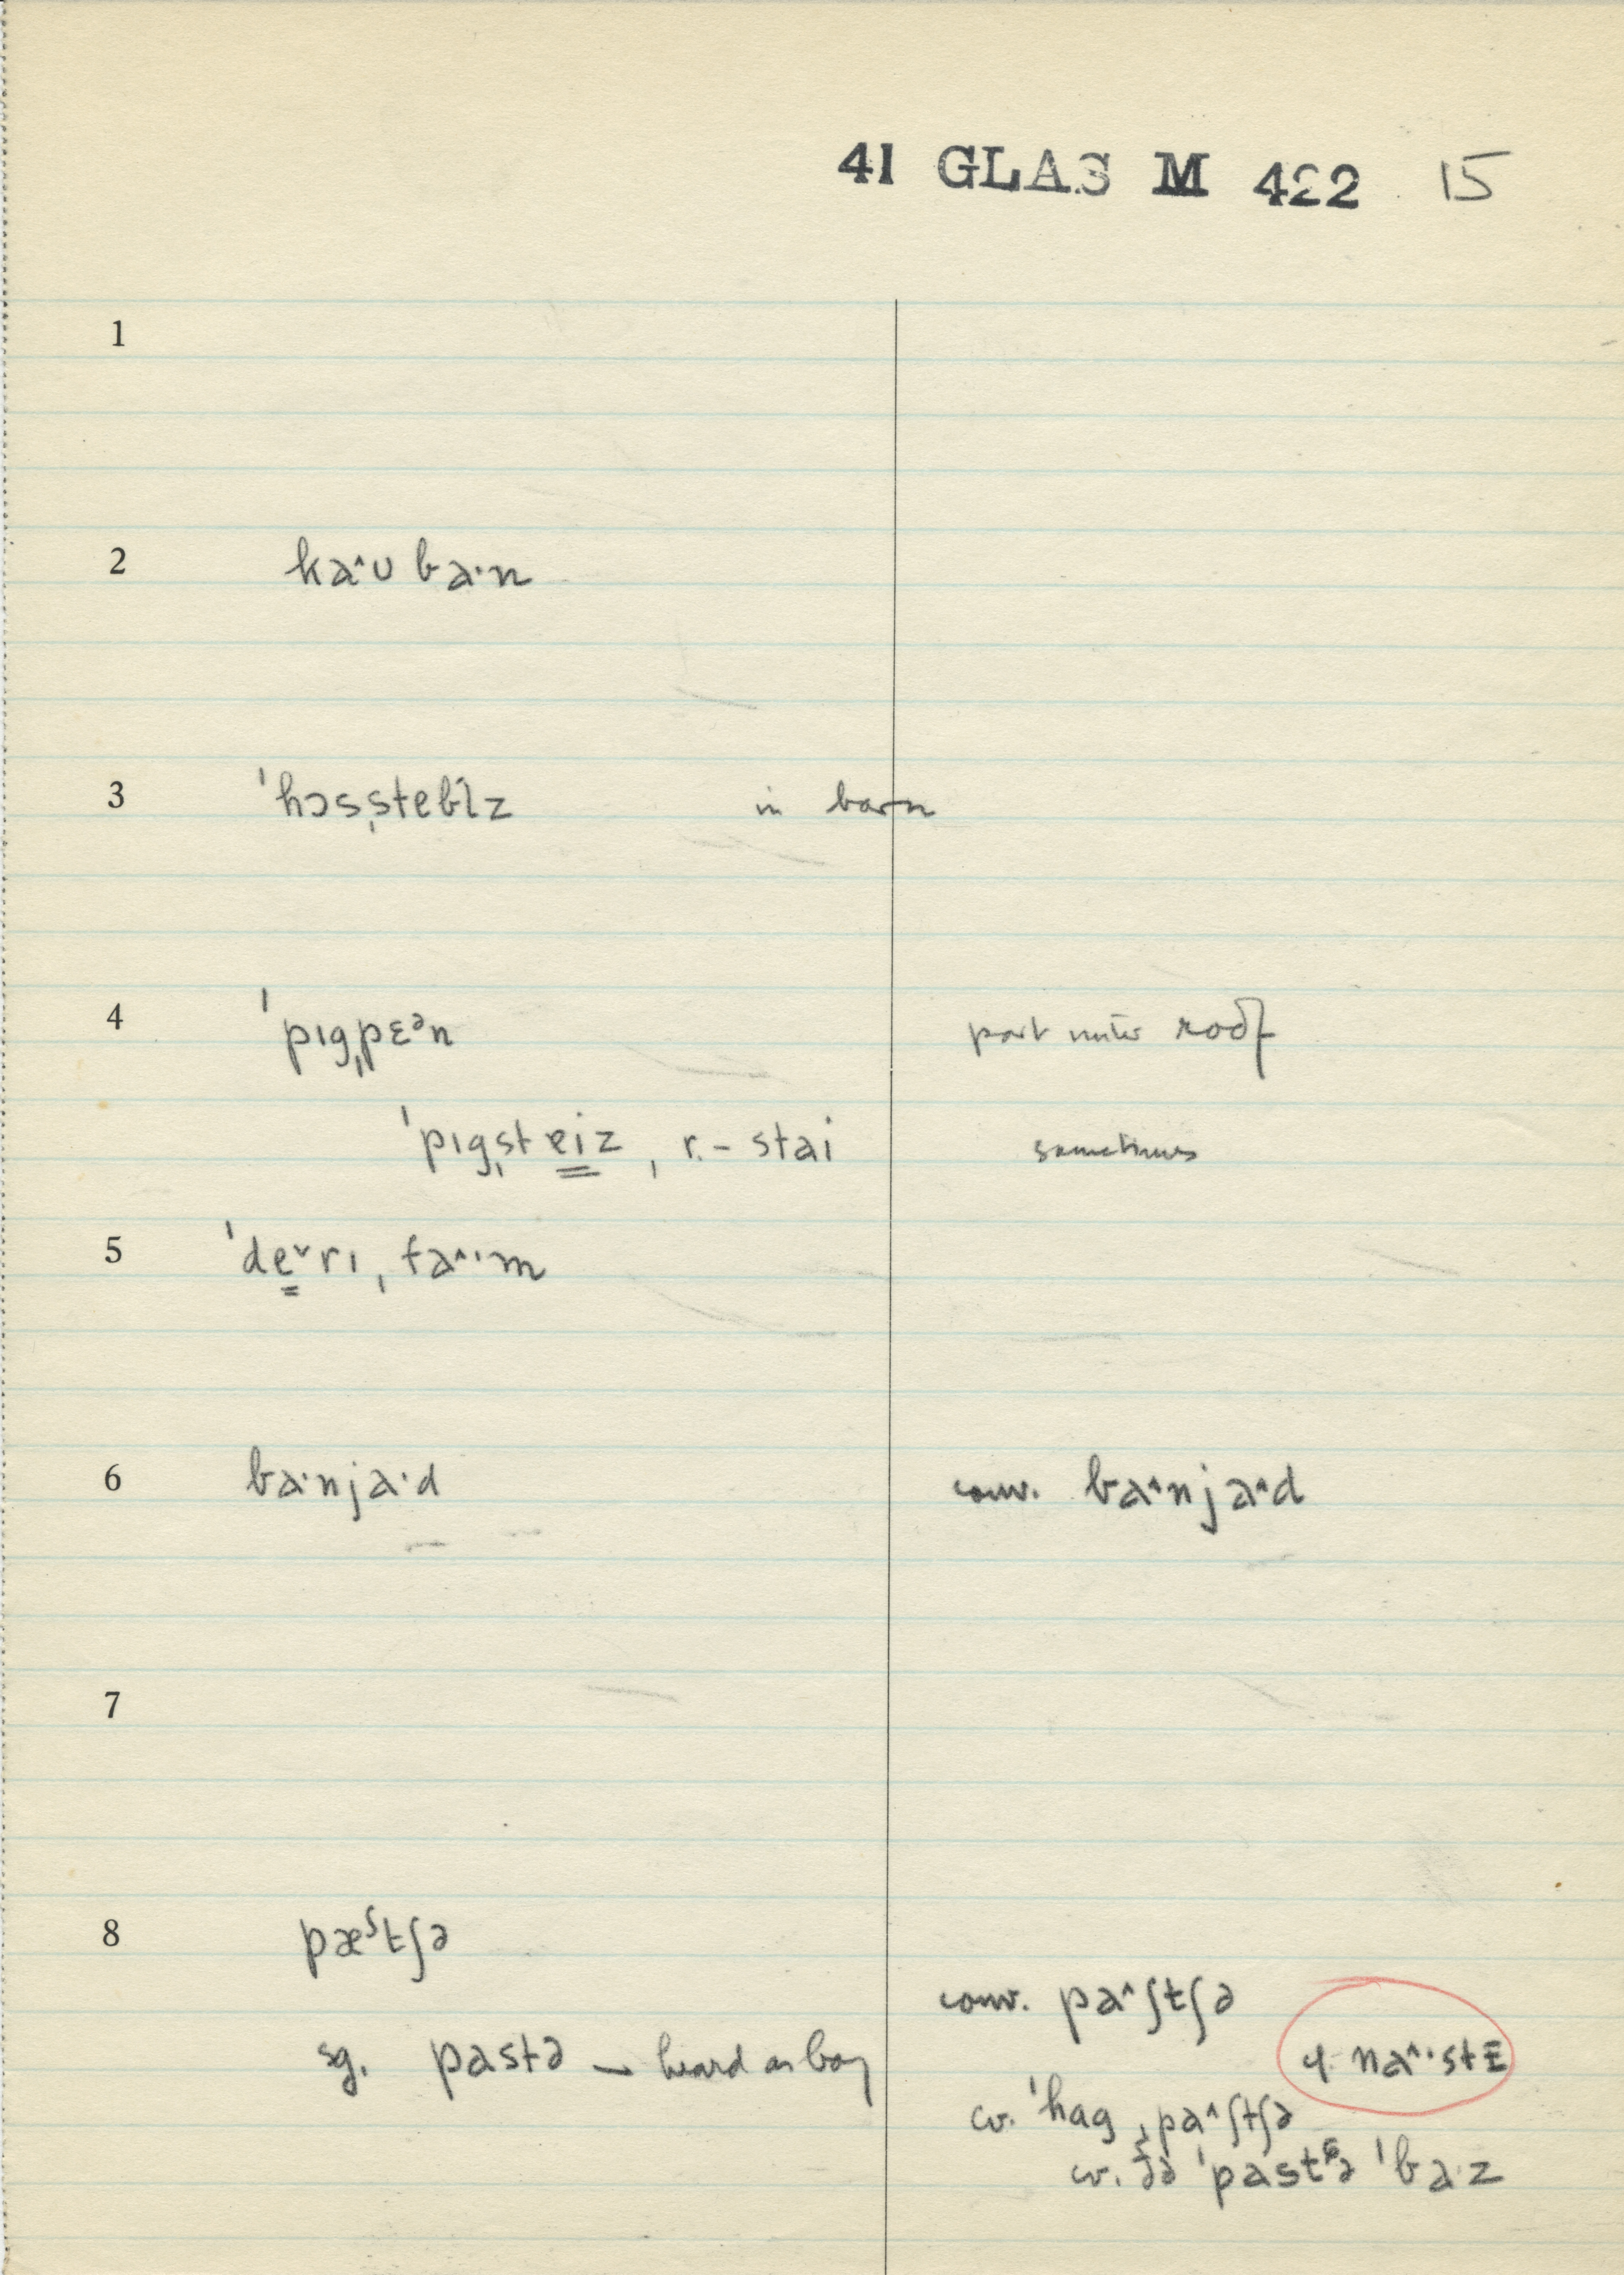 41 GLAS M 422 15
1
2 ka^ʊ ba·n
3 ˈhɔsˌstebl̩z in barn
4 ˈpɪgˌpɛᵊn part under roof
ˈpɪgˌsteiz, r. – stai sometimes
5 ˈdeˇrɪ ˌfa^·m
6 ba·nja·d conv. ba^nja^d
7
8 pæˢtʃə
conv. pa^ʃtʃə
sg. pastə – heard as boy cf. na^·stE
cv. ˈhag ˌpa^ʃtʃə
cv. ðə ˈpastə ˈba·z